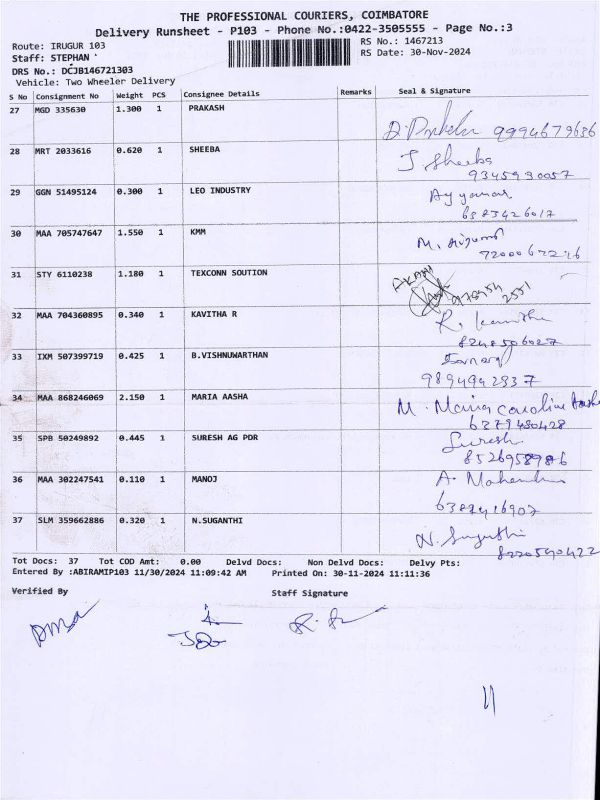 THE PROFESSIONAL COURIERS, COIMBATORE
Delivery Runsheet - P103 - Phone No.:0422-3505555 - Page No.:3
Route: IRUGUR 103 RS No.: 1467213
Staff: STEPHAN RS Date: 30-Nov-2024
DRS No.: DCJB146721303
Vehicle: Two Wheeler Delivery
S No Consignment No Weight PCS Consignee Details Remarks Seal & Signature
27 MGD 335630 1.300 1 PRAKASH
9994679686
28 MRT 2033616 0.620 1 SHEEBA J. Sheeba
9345930057
29 GGN 51495124 0.300 1 LEO INDUSTRY
6383426017
30 MAA 705747647 1.550 1 KMM
31 STY 6110238 1.180 1 TEXCONN SOUTION
32 MAA 704360895 0.340 1 KAVITHA R R. Kavitha
8248506027
33 IXM 507399719 0.425 1 B.VISHNUWARTHAN
9894942937
34 MAA 868246069 2.150 1 MARIA AASHA M. Maria Caroline Aasha
6379480428
35 SPB 50249892 0.445 1 SURESH AG PDR Suresh
8526958986
36 MAA 302247541 0.110 1 MANOJ
6382416907
37 SLM 359662886 0.320 1 N.SUGANTHI N. Suganthi
8220590422
Tot Docs: 37 Tot COD Amt: 0.00 Delvd Docs: Non Delvd Docs: Delvy Pts:
Entered By :ABIRAMIP103 11/30/2024 11:09:42 AM Printed On: 30-11-2024 11:11:36
Verified By Staff Signature